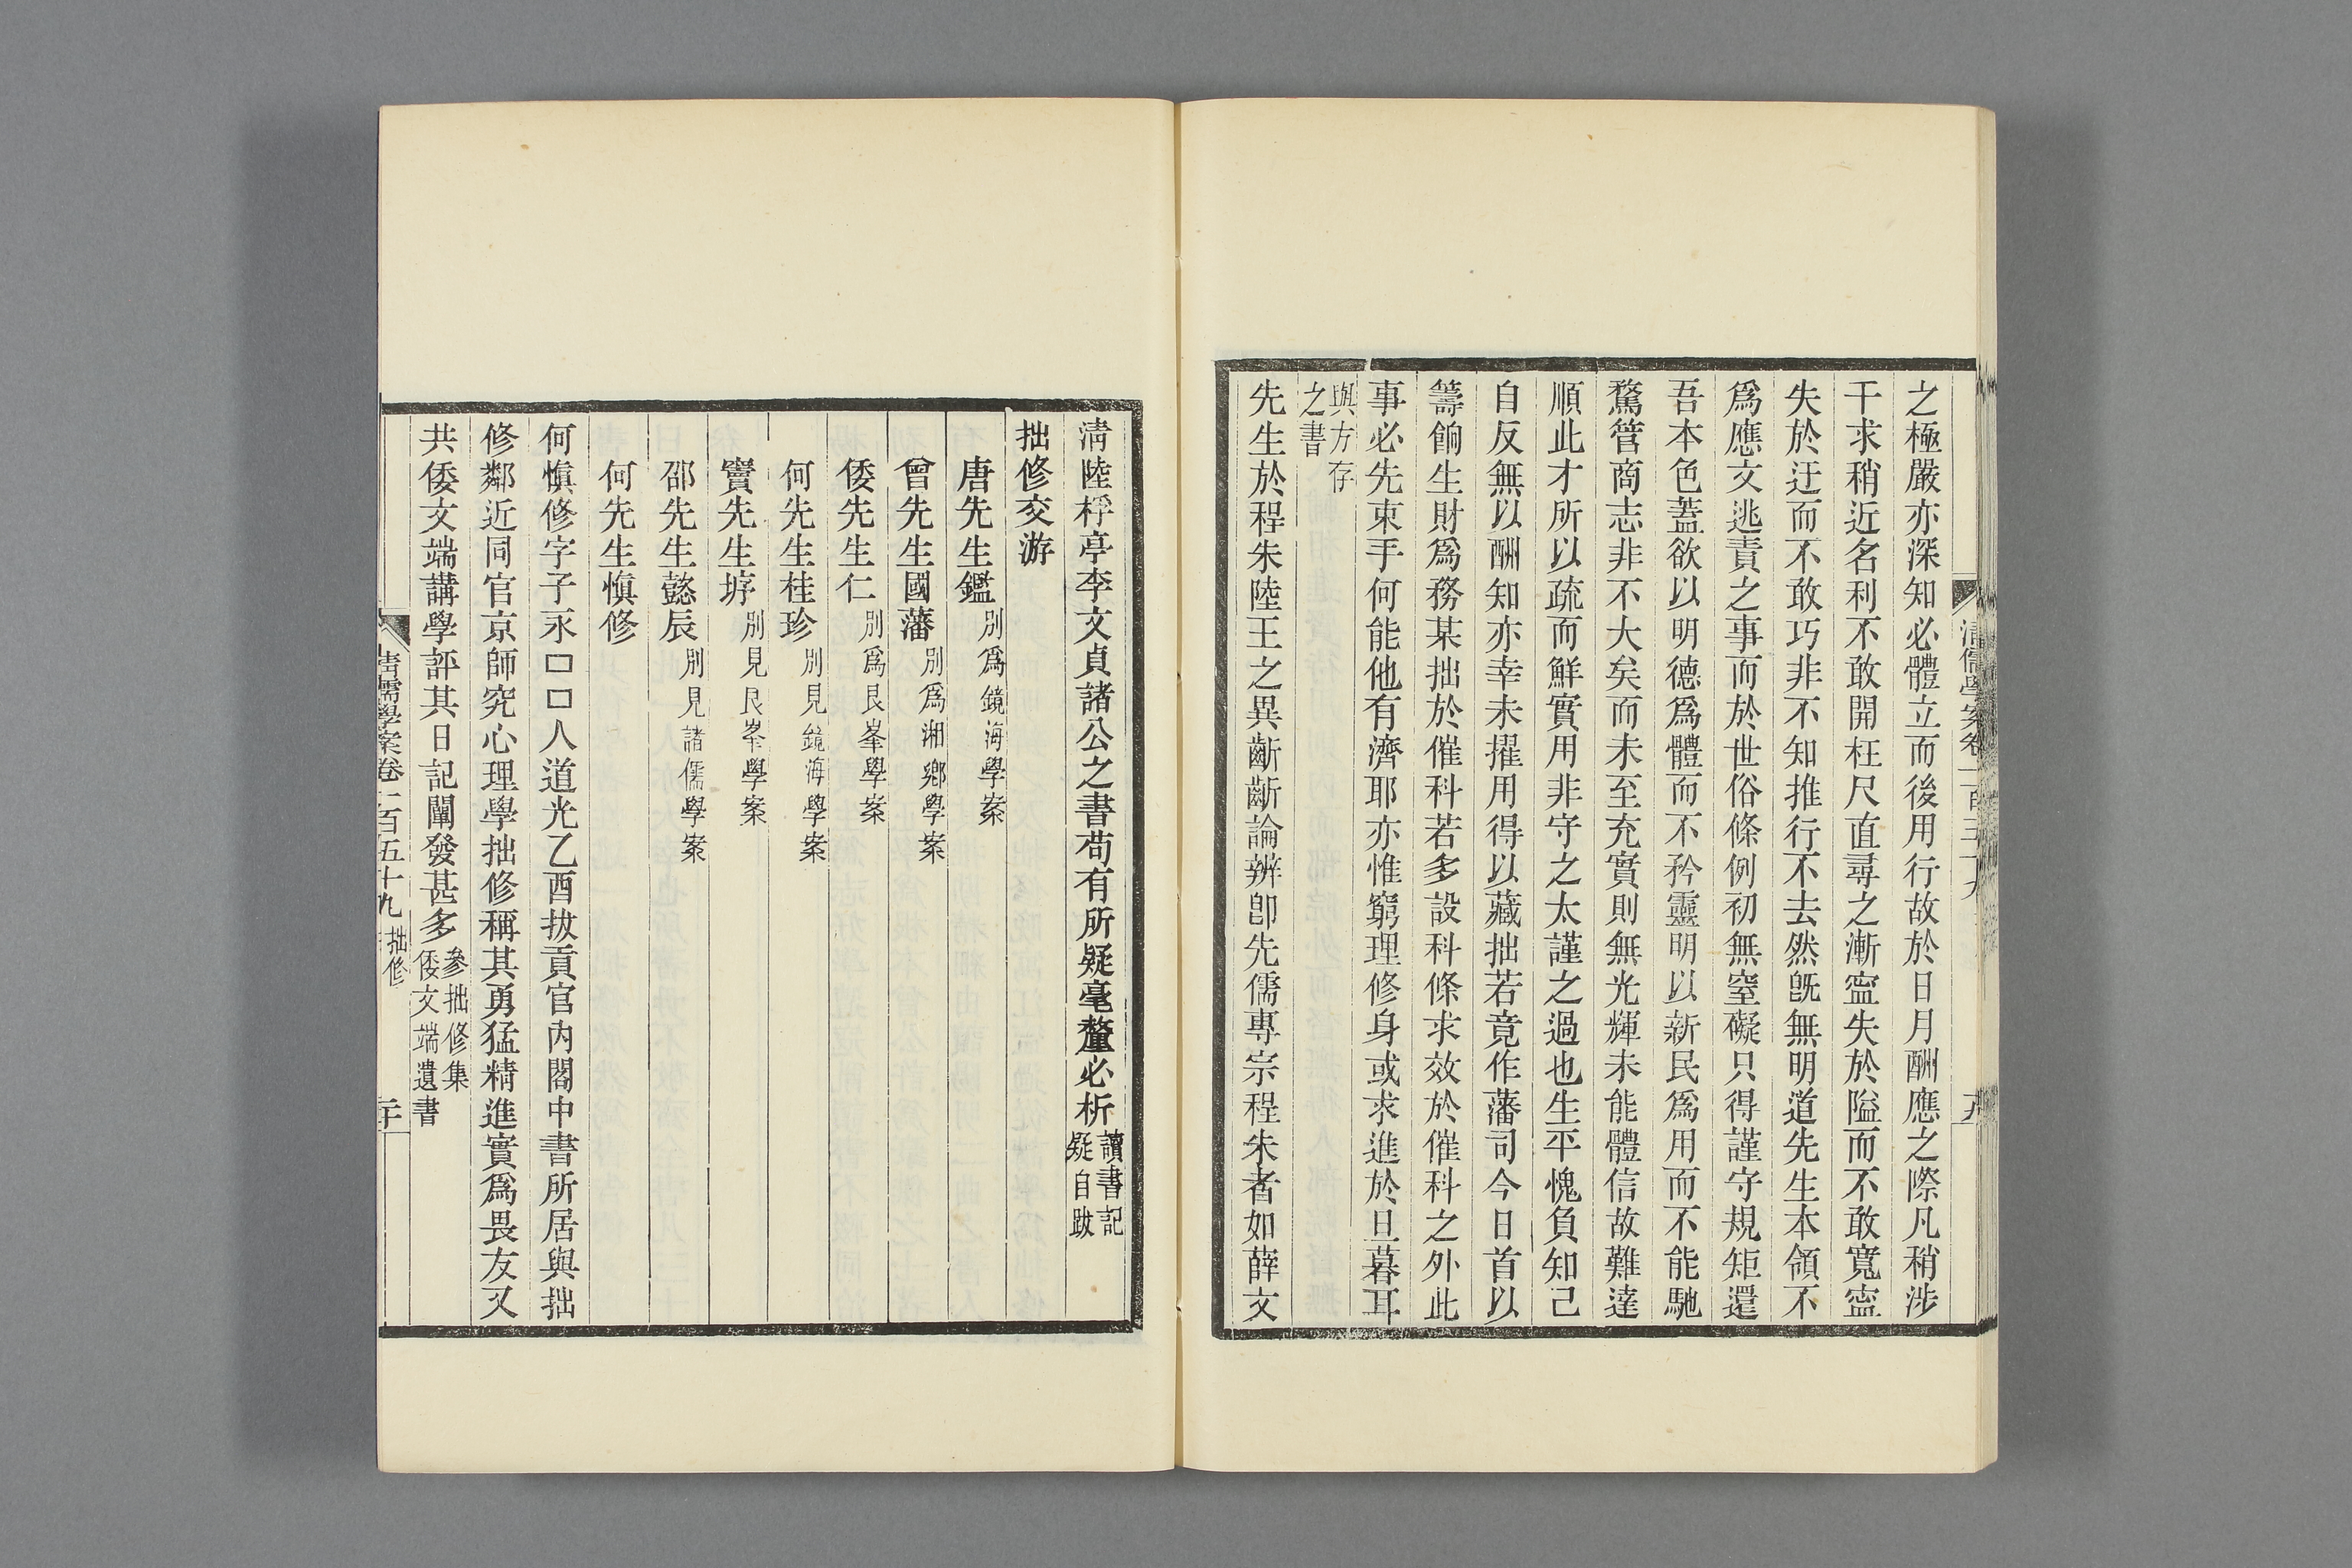 之極嚴亦深知必體立而後用行故於日月酬應之際凡稍涉
干求稍近名利不敢開枉尺直尋之漸寍失於隘而不敢寬寍
失於迂而不敢巧非不知推行不去然旣無明道先生本領不
爲應文逃責之事而於世俗條例初無窒礙只得謹守規矩還
吾本色蓋欲以明德爲體而不矜靈明以新民爲用而不能馳
騖管商志非不大矣而未至充實則無光輝未能體信故難達
順此才所以疏而鮮實用非守之太謹之過也生平愧負知己
自反無以酬知亦幸未擢用得以藏拙若竟作藩司今日首以
籌餉生財爲務某拙於催科若多設科條求效於催科之外此
事必先束手何能他有濟耶亦惟窮理修身或求進於旦暮耳
與方存
之書
先生於程朱陸王之異齗齗論辨卽先儒專宗程朱者如薛文
清陸桴亭李文貞諸公之書苟有所疑毫釐必析讀書記
疑自跋
拙修交游
唐先生鑑別爲鏡海學案
曾先生國藩別爲湘鄉學案
倭先生仁別爲艮峯學案
何先生桂珍別見鏡海學案
竇先生垿別見艮峯學案
邵先生懿辰別見諸儒學案
何先生愼修
何愼修字子永口口人道光乙酉拔貢官內閣中書所居與拙
修鄰近同官京師究心理學拙修稱其勇猛精進實爲畏友又
共倭文端講學評其日記闡發甚多參拙修集
倭文端遺書
清儒學案卷一百五十九 拙修 二十